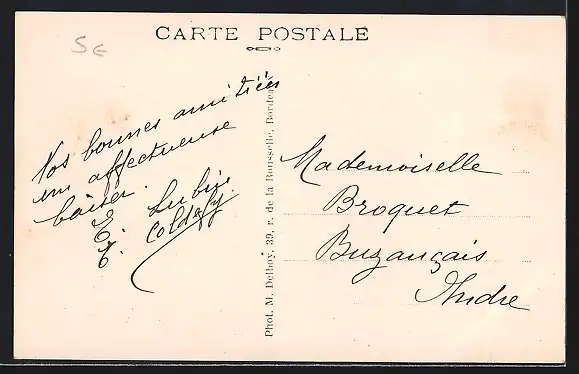 CARTE POSTALE
5 €
Nos bonnes amitiés
un affectueuse
baiser.
E. Lubin
E. Coldefy.
Phot. M. Delboy, 39, r. de la Rousselle, Bordeaux
Mademoiselle
Broquet
Buzançais
Indre